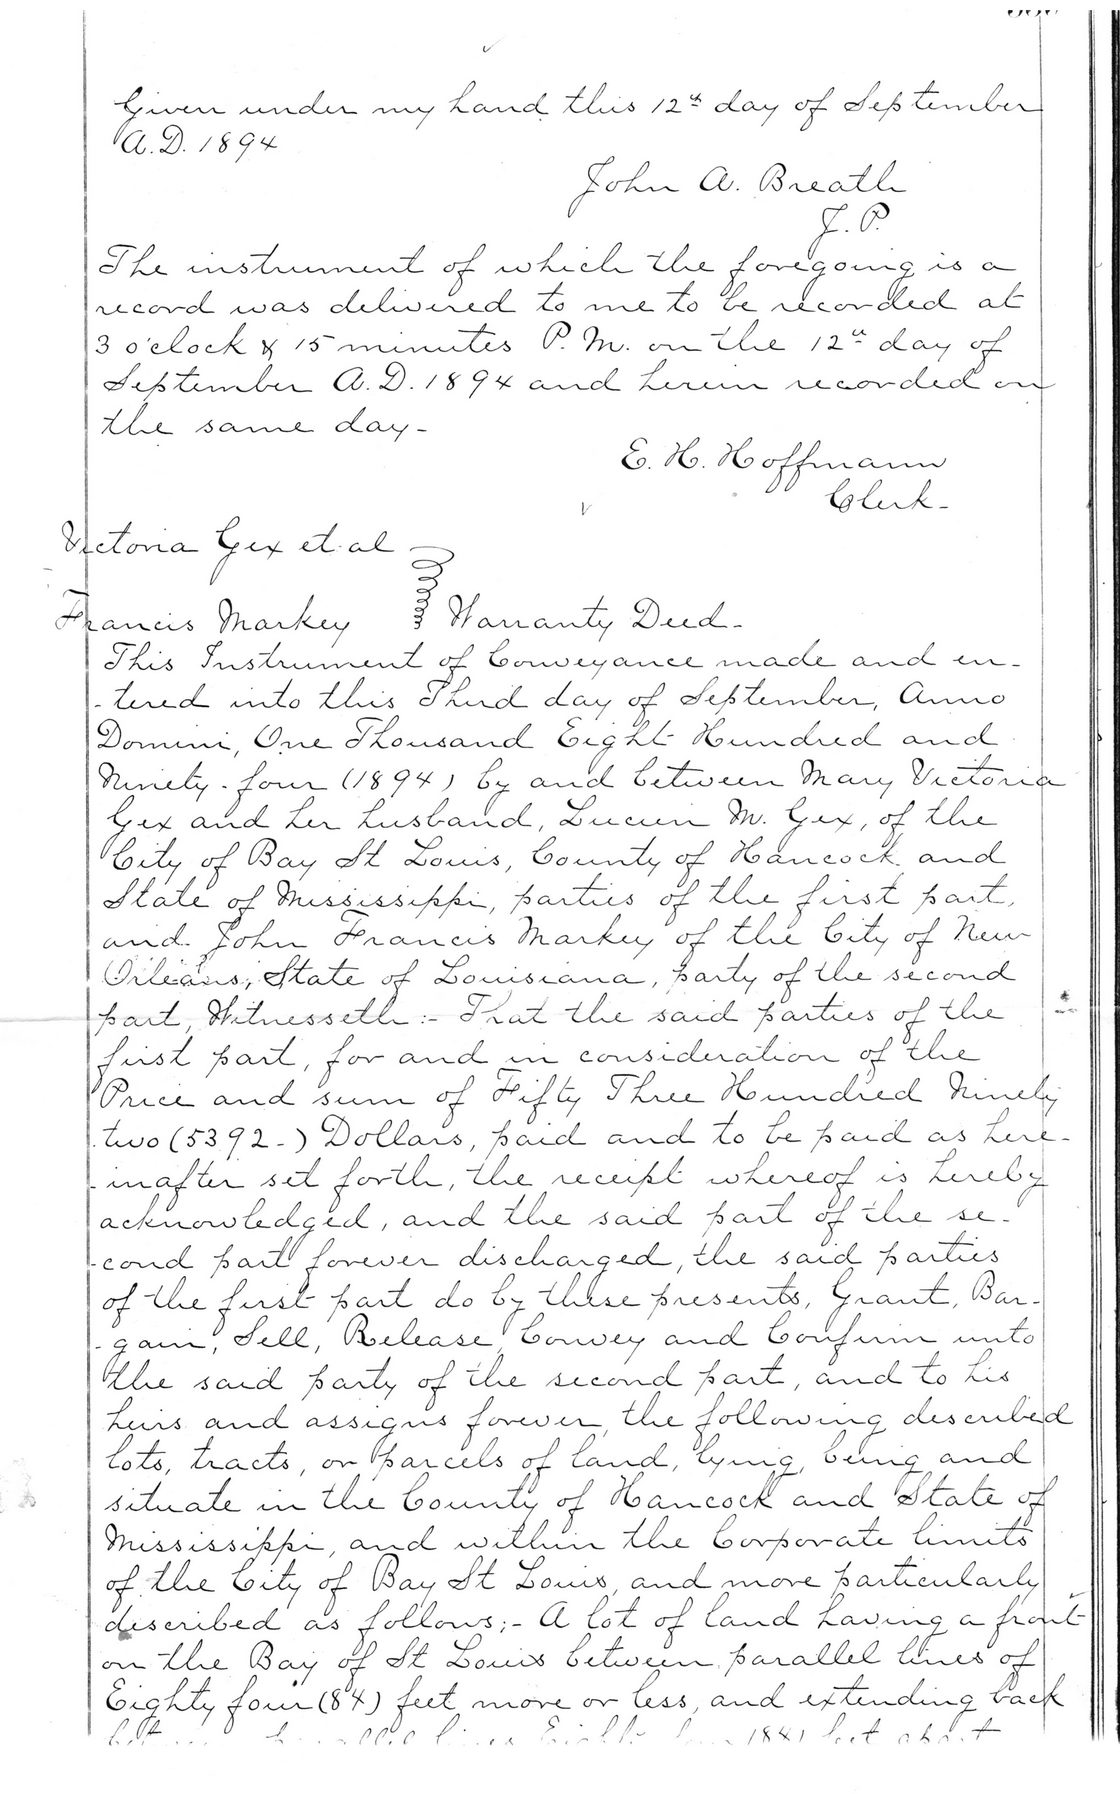 Given under my hand this 12th day of September
A.D. 1894
John A. Breath
J. P.
The instrument of which the foregoing is a
record was delivered to me to be recorded at
3 o'clock & 15 minutes P. M. on the 12th day of
September A.D. 1894 and herein recorded on
the same day-
E. H. Hoffmann
Clerk-
Victoria Gex et al
Francis Markey Warranty Deed-
This Instrument of Conveyance made and en-
-tered into this Third day of September, Anno
Domini, One Thousand Eight Hundred and
Ninety-four (1894) by and between Mary Victoria
Gex and her husband, Lucien M. Gex, of the
City of Bay St Louis, County of Hancock and
State of Mississippi, parties of the first part,
and John Francis Markey of the City of New
Orleans, State of Louisiana, party of the second
part, Witnesseth:- That the said parties of the
first part, for and in consideration of the
Price and sum of Fifty Three Hundred Ninety
two (5392-) Dollars, paid and to be paid as here-
-inafter set forth, the receipt whereof is hereby
acknowledged, and the said part of the se-
-cond part forever discharged, the said parties
of the first part do by these presents, Grant, Bar-
-gain, Sell, Release, Convey and Confirm unto
the said party of the second part, and to his
heirs and assigns forever, the following described
lots, tracts, or parcels of land, lying, being and
situate in the County of Hancock and State of
Mississippi, and within the Corporate limits
of the City of Bay St Louis, and more particularly
described as follows;- A lot of land having a front
on the Bay of St Louis between parallel lines of
Eighty four (84) feet more or less, and extending back